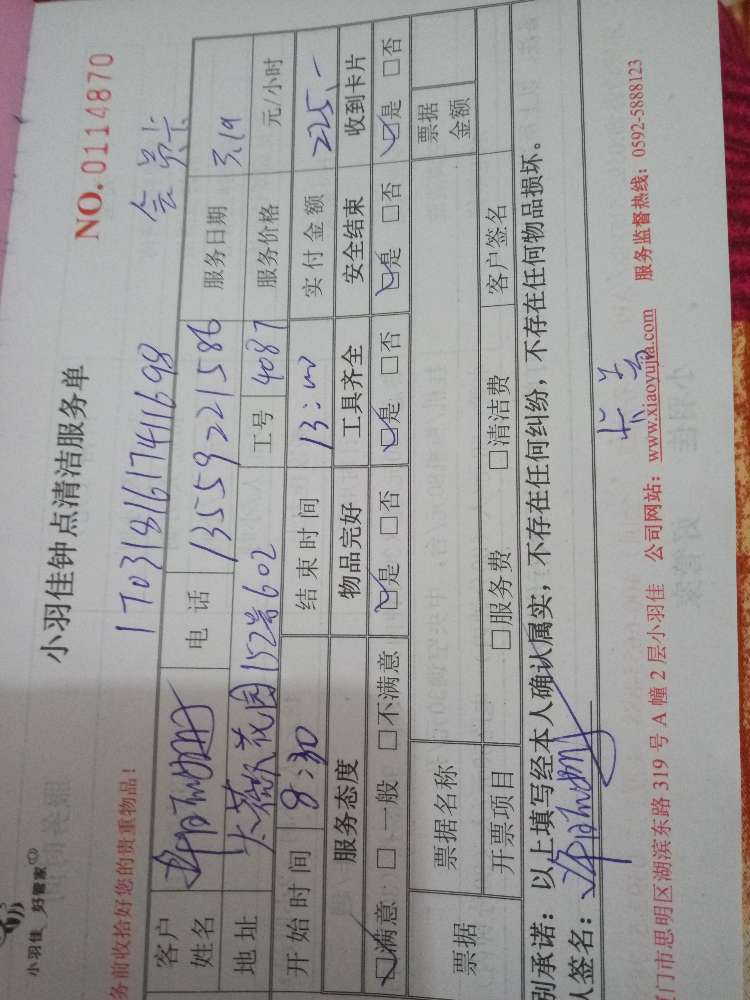 小羽佳 好管家
小羽佳钟点清洁服务单
NO. 0114870
务前收拾好您的贵重物品!
170318161741698
会员卡
客户姓名 电话 13559221586 服务日期 3.19
地址 152号602 工号 4087 服务价格 元/小时
开始时间 8:30 结束时间 13:00 实付金额 225.-
服务态度 物品完好 工具齐全 安全结束 收到卡片
☑满意 □一般 □不满意 ☑是 □否 ☑是 □否 ☑是 □否 ☑是 □否
票据 票据名称 票据金额
开票项目 □服务费 □清洁费 客户签名
别承诺:以上填写经本人确认属实,不存在任何纠纷,不存在任何物品损坏。
人签名:
门市思明区湖滨东路 319 号 A 幢 2 层小羽佳 公司网站:www.xiaoyujia.com 服务监督热线:0592-5888123